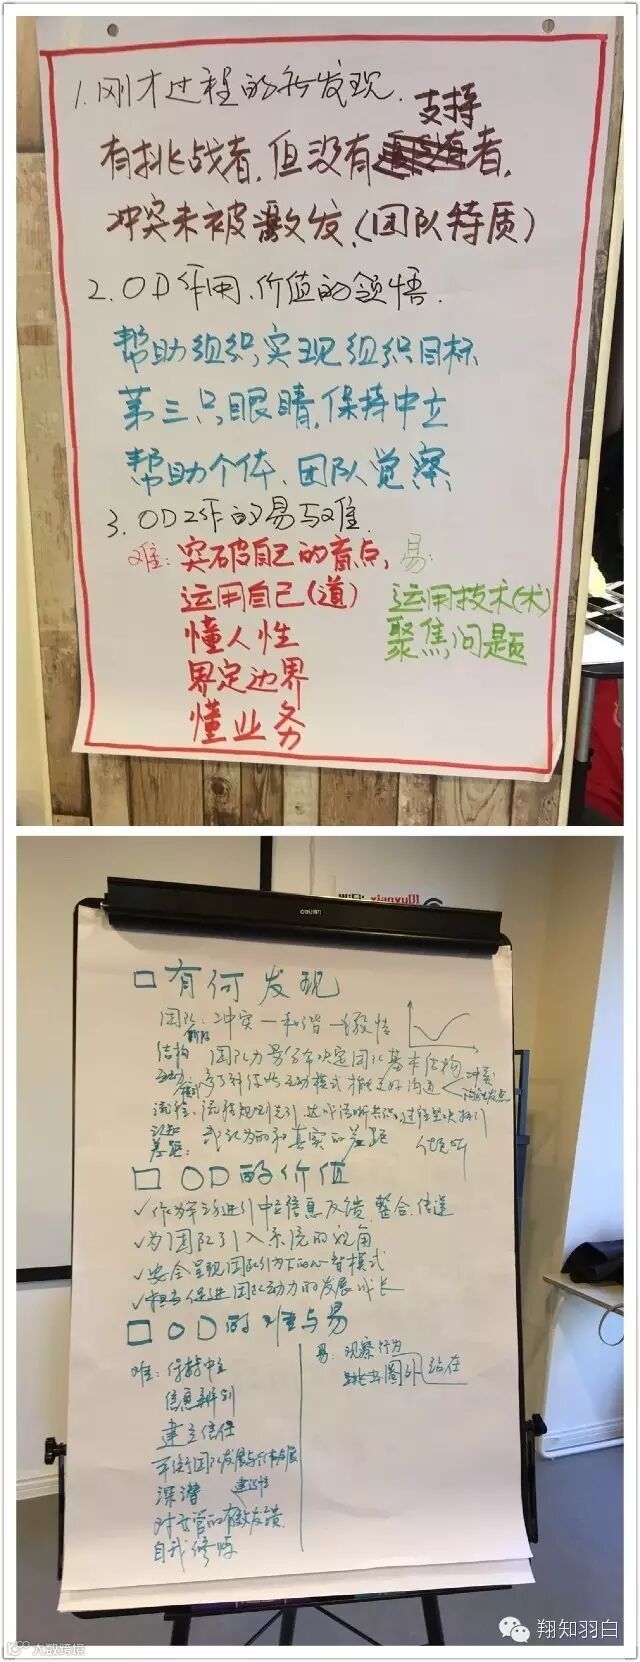 1. 刚才过程的新发现.
支持
有挑战者, 但没有者,
冲突未被激发,(团队特质)
2. OD作用、价值的领悟.
帮助组织,实现组织目标
第三只眼睛,保持中立
帮助个体、团队觉察
3. OD工作的易与难.
难: 突破自己的盲点, 易:
运用自己(道) 运用技术(术)
懂人性 聚焦问题
界定边界
懂业务
deli得力
□ 有何发现
团队: 冲突一和谐一致性
结构 团队力量分布决定团队基本结构
互动模式
流程:
认知差距: 我认为的和真实的差距
□ OD的价值
✓作为第三方进行中立信息反馈、整合、传递
✓为团队引入系统的视角
✓安全呈现团队当下的心智模式
✓促进团队动力的发展成长
□ OD的难与易
难: 保持中立 易: 观察行为
信息辨别 跳出圈外 站在
建立信任
平衡团队发展与个体发展
深潜 建设性
对主管的有效反馈
自我修炼
翔知羽白
大数跨境